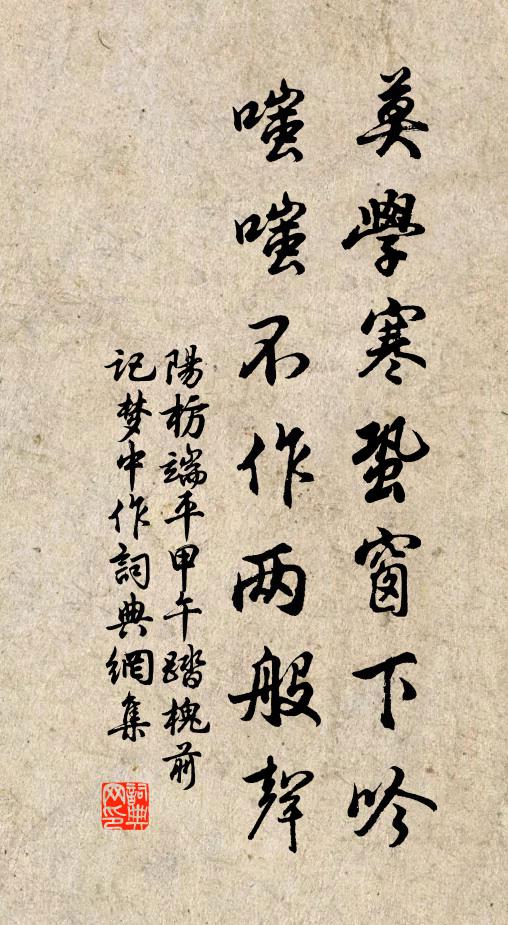 莫學寒蛩窗下吟
嗤嗤不作两般聲
陽枋端平甲午踏槐前
记梦中作詞典網集
詞典
网印